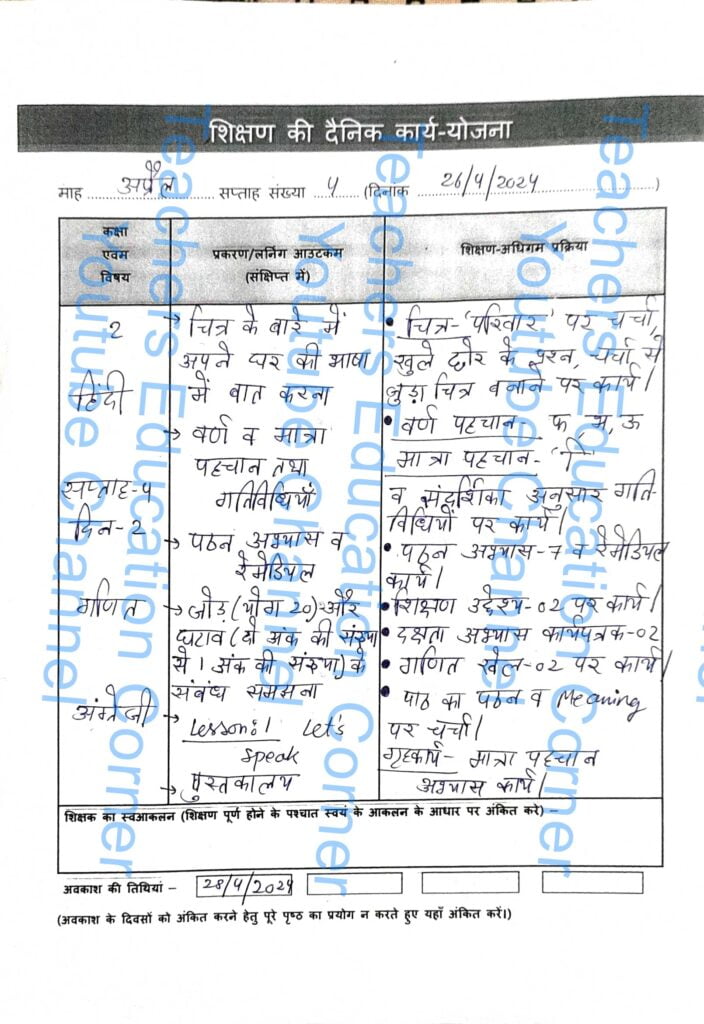 शिक्षण की दैनिक कार्य-योजना
माह अप्रैल सप्ताह संख्या 4 (दिनांक 26/4/2024)
कक्षा एवम विषय
प्रकरण/लर्निंग आउटकम (संक्षिप्त में)
शिक्षण-अधिगम प्रक्रिया
2
हिंदी
सप्ताह-4
दिन-2
गणित
अंग्रेजी
→ चित्र के बारे में
अपने घर की भाषा
में बात करना
→ वर्ण व मात्रा
पहचान तथा
गतिविधियाँ
→ पठन अभ्यास व
रेमेडियल
→ जोड़ (योग 20) और
घटाव (दो अंक की संख्या
से 1 अंक की संख्या) के
संबंध समझना
→ Lesson:1 Let's
speak
→ पुस्तकालय
• चित्र-'परिवार' पर चर्चा,
खुले छोर के प्रश्न, चर्चा से
जुड़ा चित्र बनाने पर कार्य।
• वर्ण पहचान- फ, भ, ऊ
मात्रा पहचान- 'ि'
व संदर्शिका अनुसार गति-
विधियों पर कार्य।
• पठन अभ्यास-7 व रेमेडियल
कार्य।
• शिक्षण उद्देश्य-02 पर कार्य।
• दक्षता अभ्यास कार्यपत्रक-02
• गणित खेल-02 पर कार्य।
• पाठ का पठन व Meaning
पर चर्चा।
गृहकार्य- मात्रा पहचान
अभ्यास कार्य।
शिक्षक का स्वआकलन (शिक्षण पूर्ण होने के पश्चात स्वयं के आकलन के आधार पर अंकित करे) –
अवकाश की तिथियां – 28/4/2024
(अवकाश के दिवसों को अंकित करने हेतु पूरे पृष्ठ का प्रयोग न करते हुए यहाँ अंकित करें।)
Teachers Education Corner
Youtube Channel
Teachers Education Corner
Youtube Channel
Teachers Education Corner
Youtube Channel